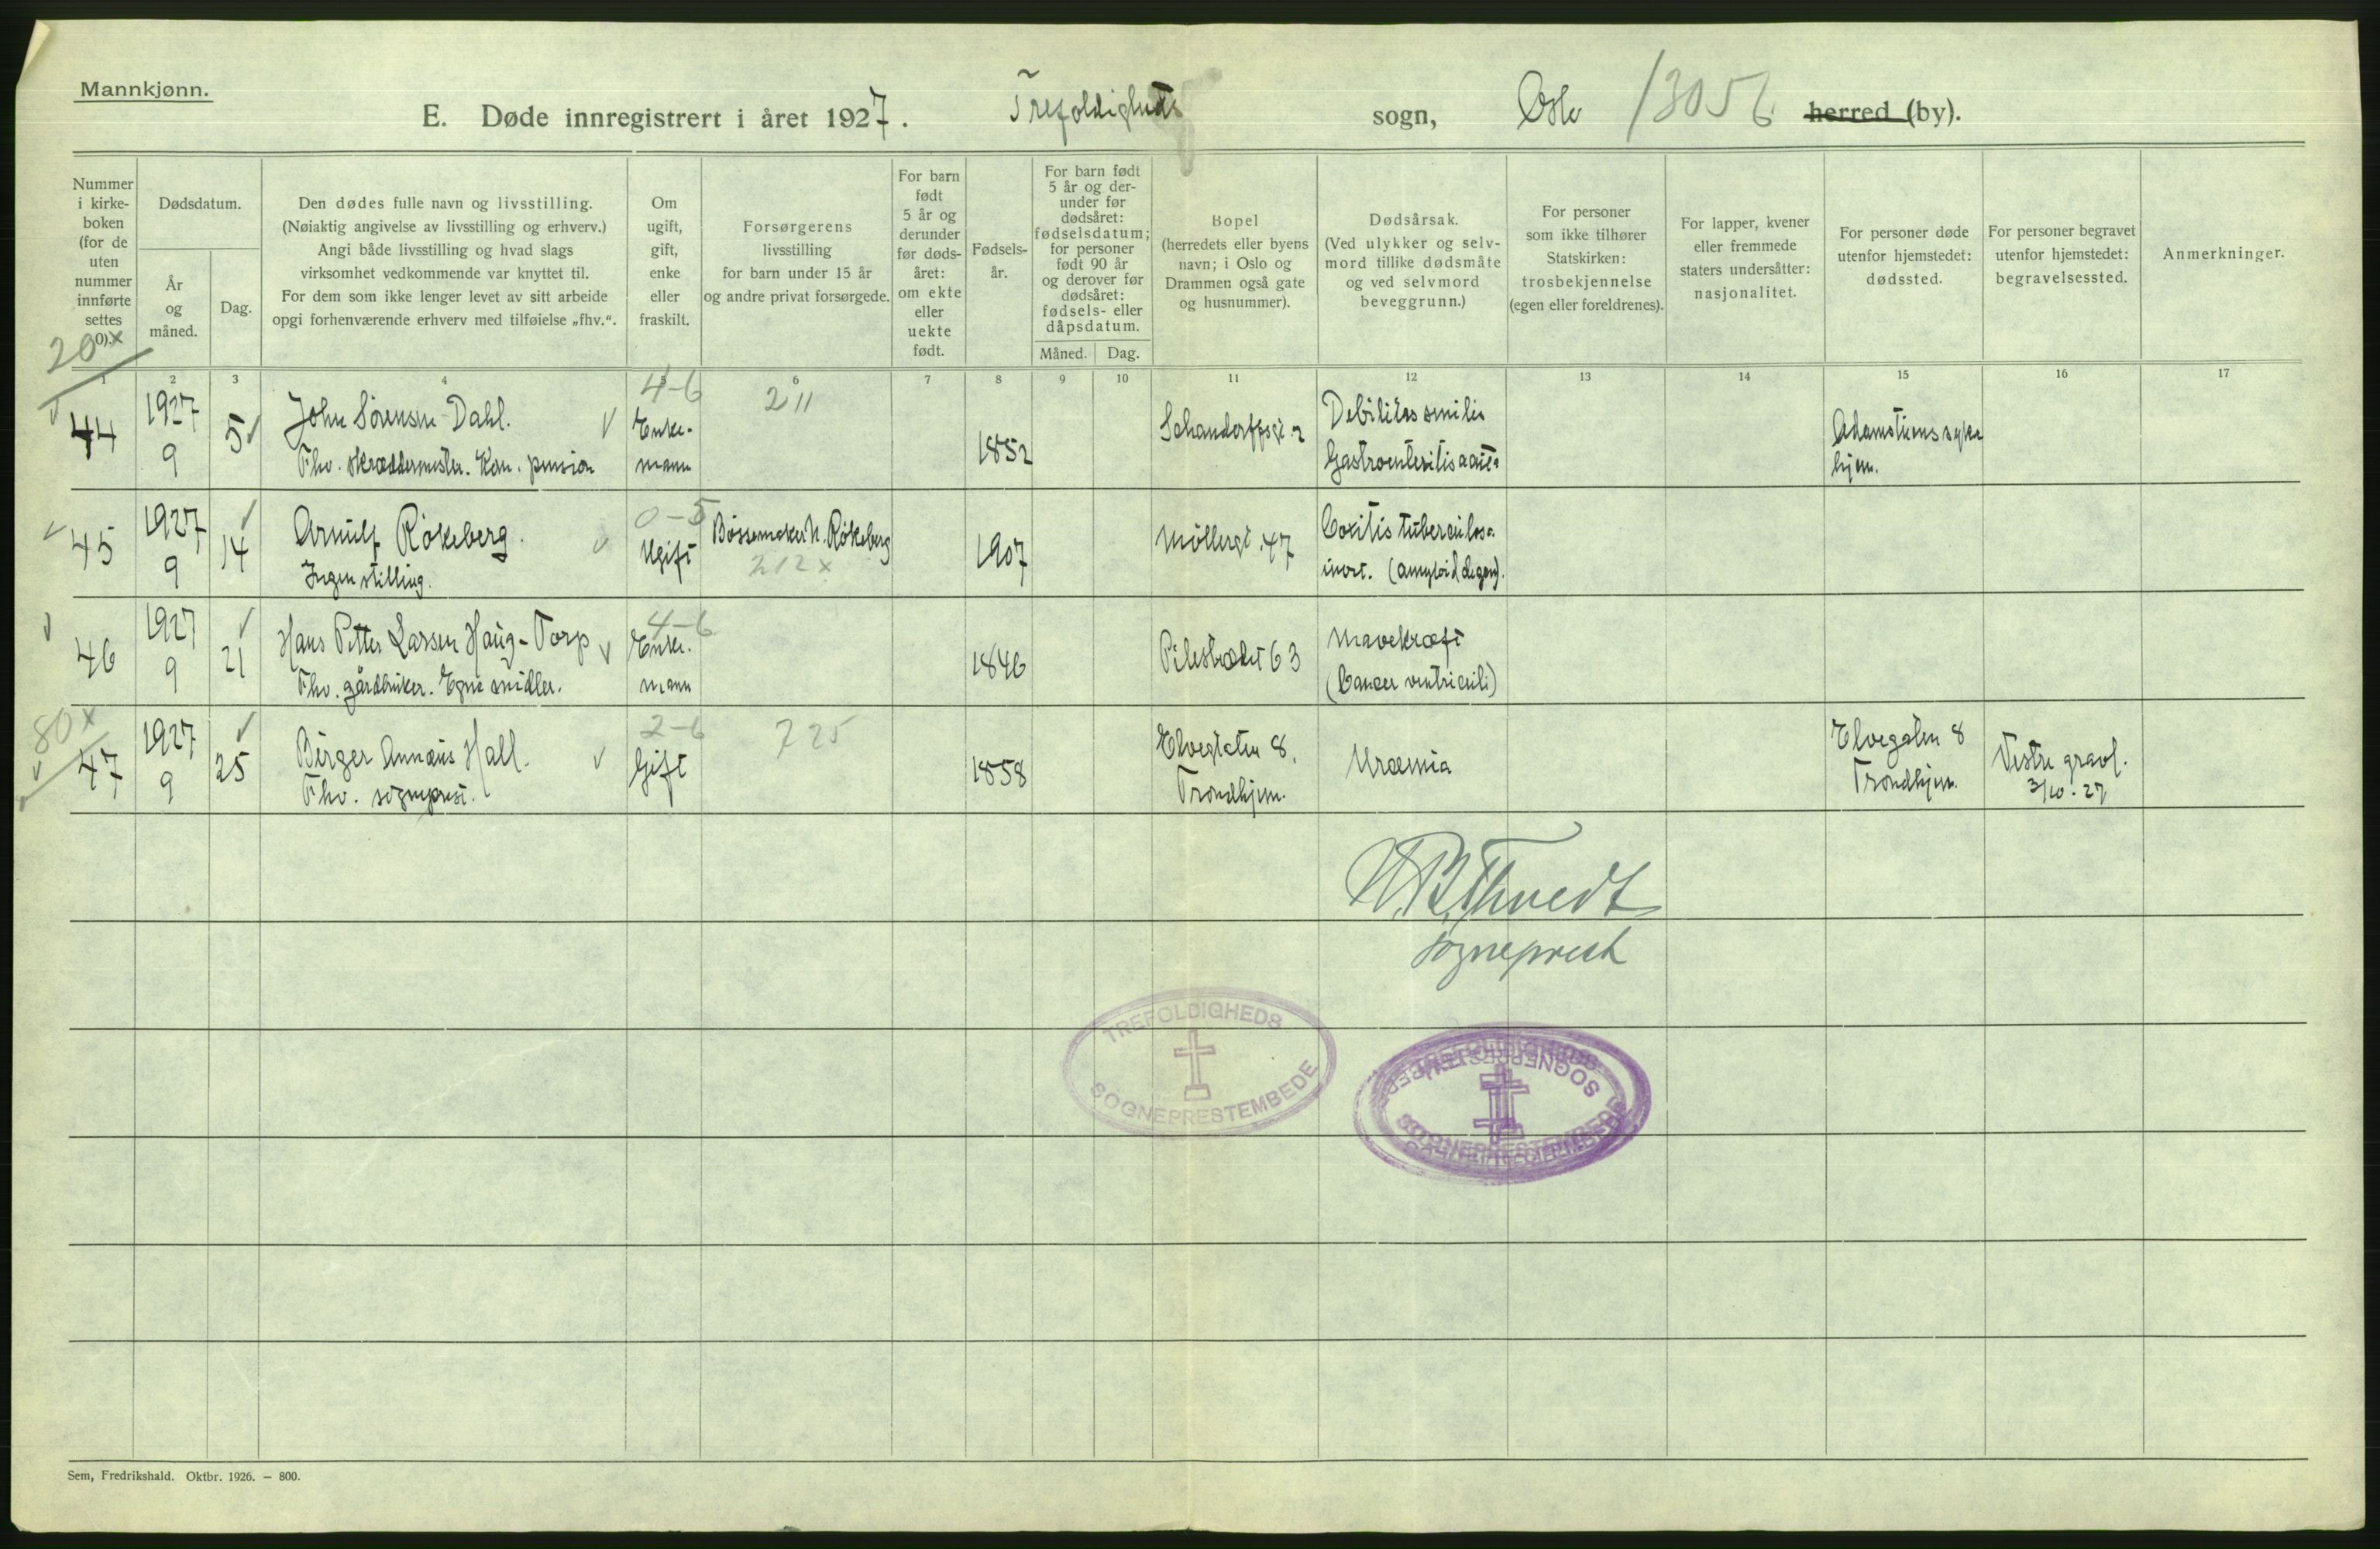 Mannkjønn.
E. Døde innregistrert i året 1927. Trefoldigheds sogn, Oslo 13056 herred (by).
Nummer
i kirke-
boken
(for de
uten
nummer
innførte
settes
0).
Dødsdatum.
År
og
måned.
Dag.
Den dødes fulle navn og livsstilling.
(Nøiaktig angivelse av livsstilling og erhverv.)
Angi både livsstilling og hvad slags
virksomhet vedkommende var knyttet til.
For dem som ikke lenger levet av sitt arbeide
opgi forhenværende erhverv med tilføielse „fhv.“.
Om
ugift,
gift,
enke
eller
fraskilt.
Forsørgerens
livsstilling
for barn under 15 år
og andre privat forsørgede.
For barn
født
5 år og
derunder
før døds-
året:
om ekte
eller
uekte
født.
Fødsels-
år.
For barn født
5 år og der-
under før
dødsåret:
fødselsdatum;
for personer
født 90 år
og derover før
dødsåret:
fødsels- eller
dåpsdatum.
Måned. Dag.
Bopel
(herredets eller byens
navn; i Oslo og
Drammen også gate
og husnummer).
Dødsårsak.
(Ved ulykker og selv-
mord tillike dødsmåte
og ved selvmord
beveggrunn.)
For personer
som ikke tilhører
Statskirken:
trosbekjennelse
(egen eller foreldrenes).
For lapper, kvener
eller fremmede
staters undersåtter:
nasjonalitet.
For personer døde
utenfor hjemstedet:
dødssted.
For personer begravet
utenfor hjemstedet:
begravelsessted.
Anmerkninger.
1 2 3 4 5 6 7 8 9 10 11 12 13 14 15 16 17
200x
44 1927 9 5 John Sørensen Dahl.
Fhv. skræddermester. Kom. pension
4-6
Enke-
mann
211
1852
Schandorffsgt. 2
Debilitas senilis
Gastroenteritis acuta
Adamstuens syke
hjem.
45 1927 9 14 Arnulf Rökeberg.
Ingen stilling.
0-5
Ugift
Bøssemaker N. Rökeberg
212x
1907
Møllergt. 47
Coxitis tuberculosa.
(amyloid degen).
46 1927 9 21 Hans Petter Larsen Haug-Torp
Fhv. gårdbruker. Egne midler.
4-6
Enke-
mann
1846
Pilestrædet 63
Mavekræft
(Cancer ventriculi)
80x
47 1927 9 25 Birger Annæus Hall.
Fhv. sogneprest.
2-6
Gift
725
1858
Elvegaten 8.
Trondhjem.
Uræmia
Elvegaten 8
Trondhjem.
Vestre gravl.
3/10.27
sogneprest
TREFOLDIGHEDS
SOGNEPRESTEMBEDE
TREFOLDIGHEDS
SOGNEPRESTEMBEDE
Sem, Fredrikshald. Oktbr. 1926. — 800.